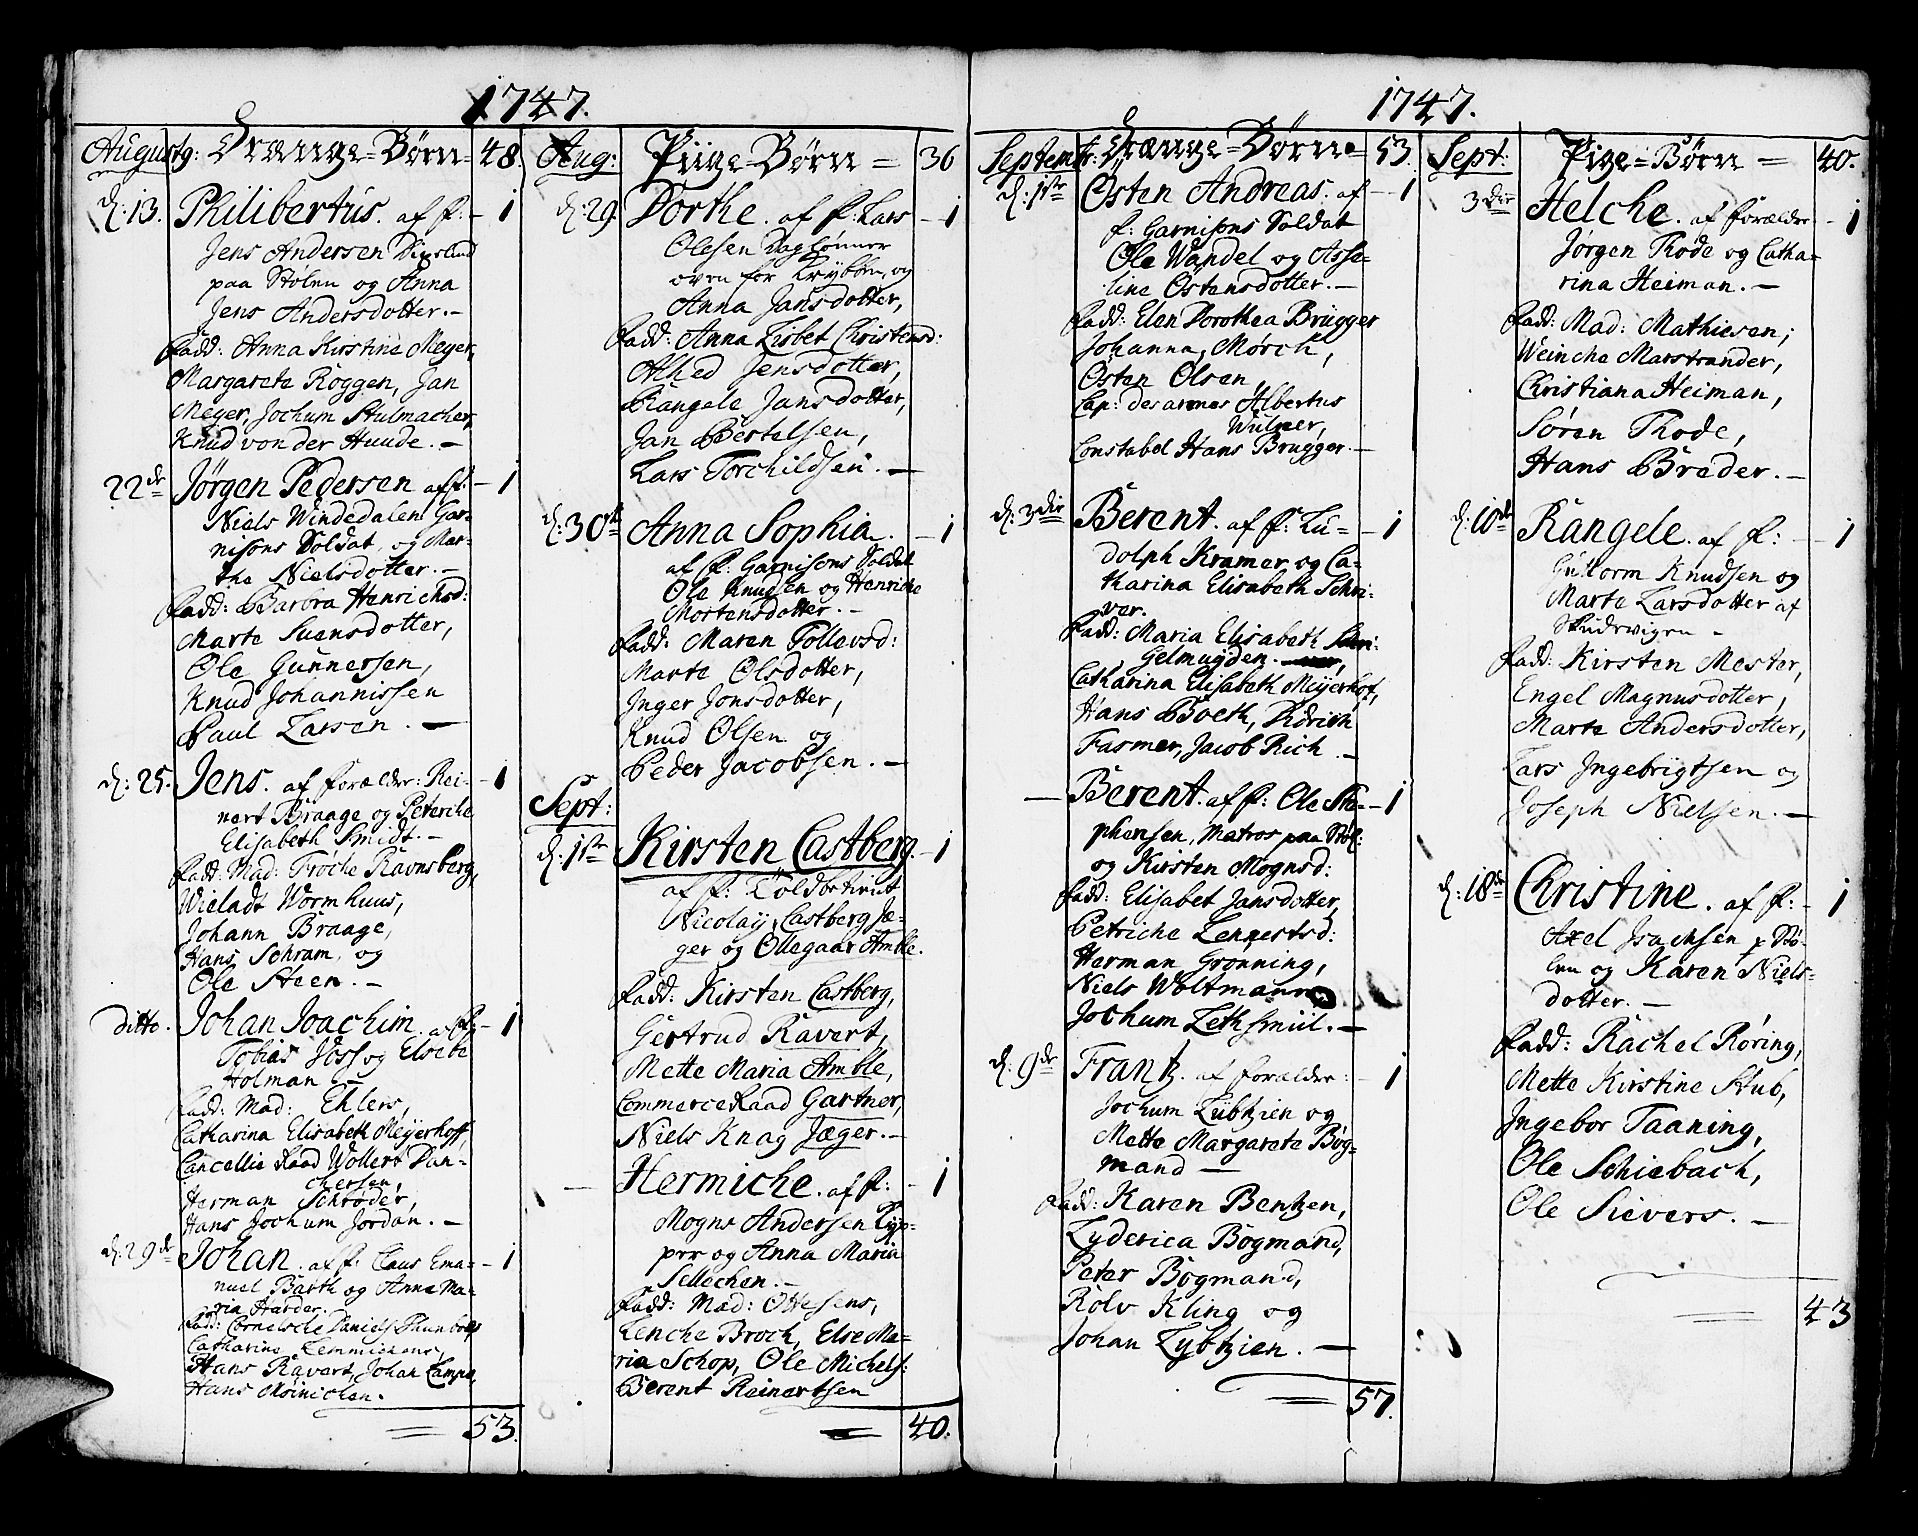 1747.
Augustg: Drænge=Børn= 48.
d: 13. Philibertus. af f: - 1
Jens Andersen
paa Stølen og Anna
Jens Andersdotter. -
Fadd: Anna Kirstine Meyer,
Margarete Roggen, Jan
Meyer, Jochum Stulmacher,
Knud von der Huude. -
22de Jørgen Pedersen af f: - 1
Niels Windedalen Gar=
nisons Soldat, og Mar=
the Nielsdotter. -
Fadd: Barbra Henrichsd:
Marte Suensdotter,
Ole Gunnersen,
Knud Johannissen
Paul Larsen. -
d: 25. Jens. af forældre: Rei= - 1
nert Braage og Peterche
Elisabeth Smidt. -
Fadd: Mad: Trøche Ravnsberg,
Wieladt Wormhuus,
Johann Braage,
Hans Schram, og
Ole Steen. -
ditto. Johan Joachim. af f: - 1
Tobias Joss og Elsebe
Holman -
Fadd: Mad: Ehlers,
Catharina Elisabeth Meijerhoff,
Cancellie Raad Wollert Dan=
chersen,
Herman Schrøder,
Hans Jochum Jordan. -
d: 29de Johan. af f: Claus Ema= - 1
nuel Barth og Anna Ma=
ria Harder.
Fadd: Cornelsche Daniels
Catharina
Hans Ravert, Johan Lampe,
Hans Meinichen.
53.
Aug: Piige=Børn = 36
d: 29. Dorthe. af f: Lars - 1
Olesen Daglønner
oven for Krybben, og
Anna Jansdotter,
Fadd: Anna Lisbet Christensd:
Alhed Jensdotter,
Rangele Jansdotter,
Jan Bertelsen,
Lars Torchildsen. -
d: 30te Anna Sophia. - 1
af f: Garnisons Soldat
Ole Knudsen og Henriche
Mortensdotter. -
Fadd: Maren Tollevsd:
Marte Olsdotter,
Inger Jonsdotter,
Knud Olsen og
Peder Jacobsen. -
Sept:
d: 1ste Kirsten Castberg. - 1
af f: Toldbetient
Nicolaij Castberg Jæ=
ger og Ollegaar Amble.
Fadd: Kirsten Castberg,
Gertrud Ravert,
Mette Maria Amble,
Commerce Raad Gartner,
Niels Knag Jæger. -
- Hermiche. af f: - 1
Mogns Andersen Typ=
per og Anna Maria
Sellechen. -
Fadd: Mad: Ottesens,
Lenche Broch, Else Ma=
ria Schop, Ole Michels:
Berent Reinertsen
40.
1747.
Septembr: Drænge=Børn= 53.
d: 1ste Østen Andreas. af - 1
f: Garnisons Soldat
Ole Wandel og Asse=
line Østensdotter. -
Fadd: Elen Dorothea Brugger
Johanna Mørch,
Østen Olsen,
Cap: des armes Albertus
Wulner,
Constabel Hans Brugger. -
d: 3die Berent. af f: Lu= - 1
dolph Kramer og Ca=
tharina Elisabeth Schri=
ver.
Fadd: Maria Elisabeth
Gelmuyden.
Catharina Elisabeth Meijerhof,
Hans Boeth, Didrich
Fasmer, Jacob Rich -
- Berent. af f: Ole Ste= - 1
phensen, Matros paa Støl:
og Kirsten Mognsd:
Fadd: Elisabet Jansdotter,
Petriche Lennertsd:
Herman Grønning,
Niels Woltmann
Jochum Lethsmiil. -
d: 9de Frantz. af forældre: - 1
Jochum Lybtzien og
Mette Margarete Bog=
mand -
Fadd: Karen Bentzen,
Lyderica Bogmand,
Peter Bogmand,
Rolv Kling og
Johan Lybtzien. -
57.
Sept: Pige=Børn = 40.
3die Helche. af forældre - 1
Jørgen Thode og Catha=
rina Heiman. -
Fadd: Mad: Mathiesen;
Weinche Marstrander,
Christiana Heiman,
Søren Thode,
Hans Breder. -
d: 10de Rangele. af f: - 1
Guttorm Knudsen og
Marte Larsdotter af
Skudevigen -
Fadd: Kirsten Mester,
Engel Magnusdotter,
Marte Andersdotter,
Lars Ingebrigtsen og
Joseph Nielsen. -
d: 18de Christine. af f: - 1
Axel Isachsen p Stø=
len og Karen Niels=
dotter. -
Fadd: Rachel Røring,
Mette Kirstine Stub,
Ingebor Taaning,
Ole Schiebach,
Ole Sievers. -
43